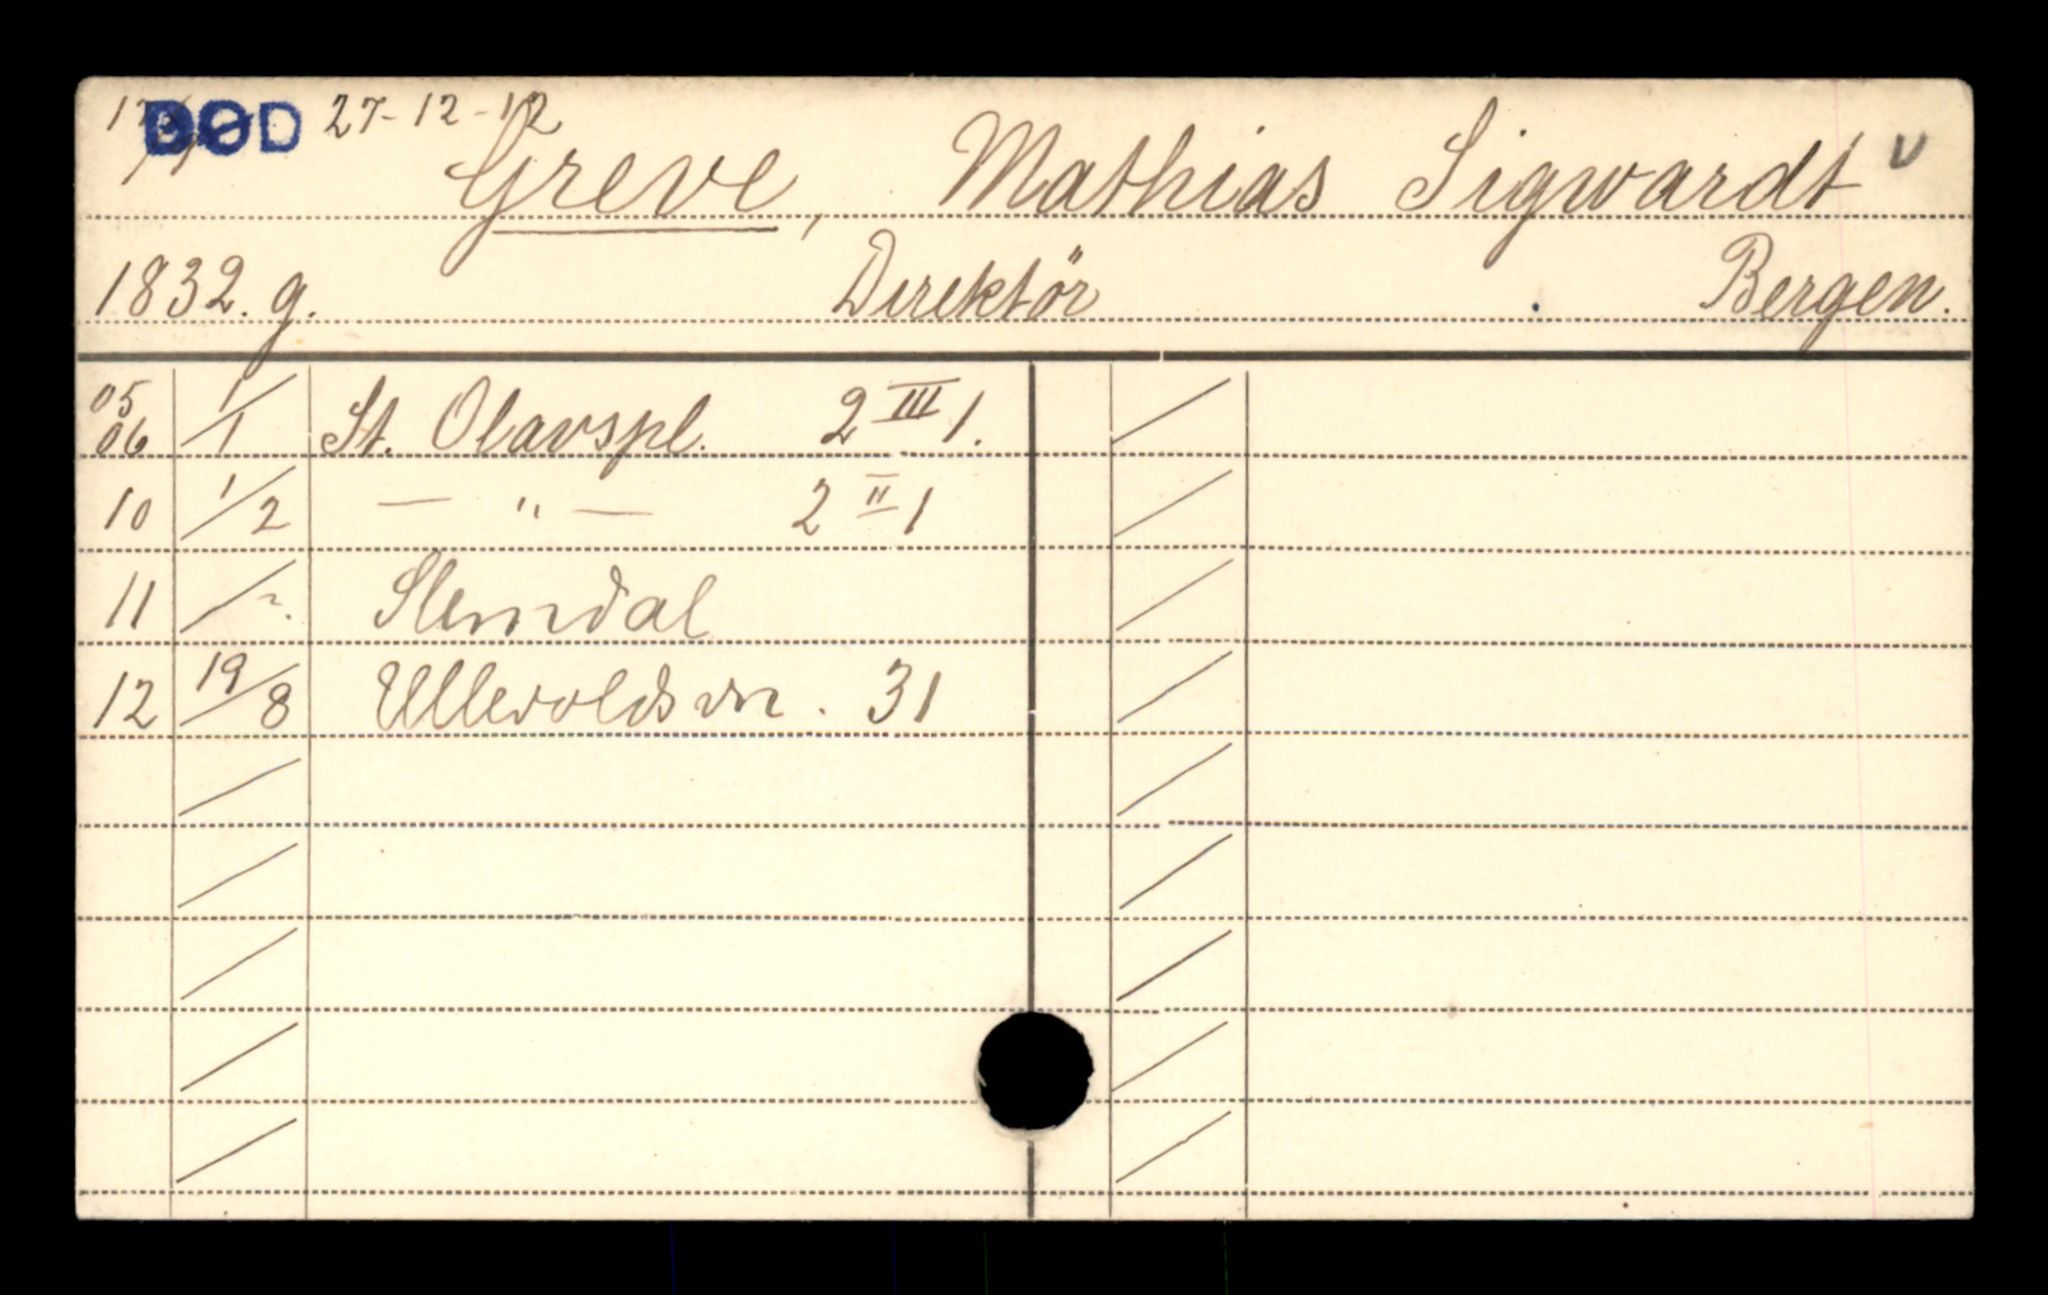 DØD 27-12-12
Greve, Mathias Sigwardt
1832. g. Direktör Bergen.
05 06 1/1 St. Olavspl. 2 III 1.
10 1/2 — " — 2 II 1
11 /?. Slemdal
12 19/8 Ullevoldsvn. 31